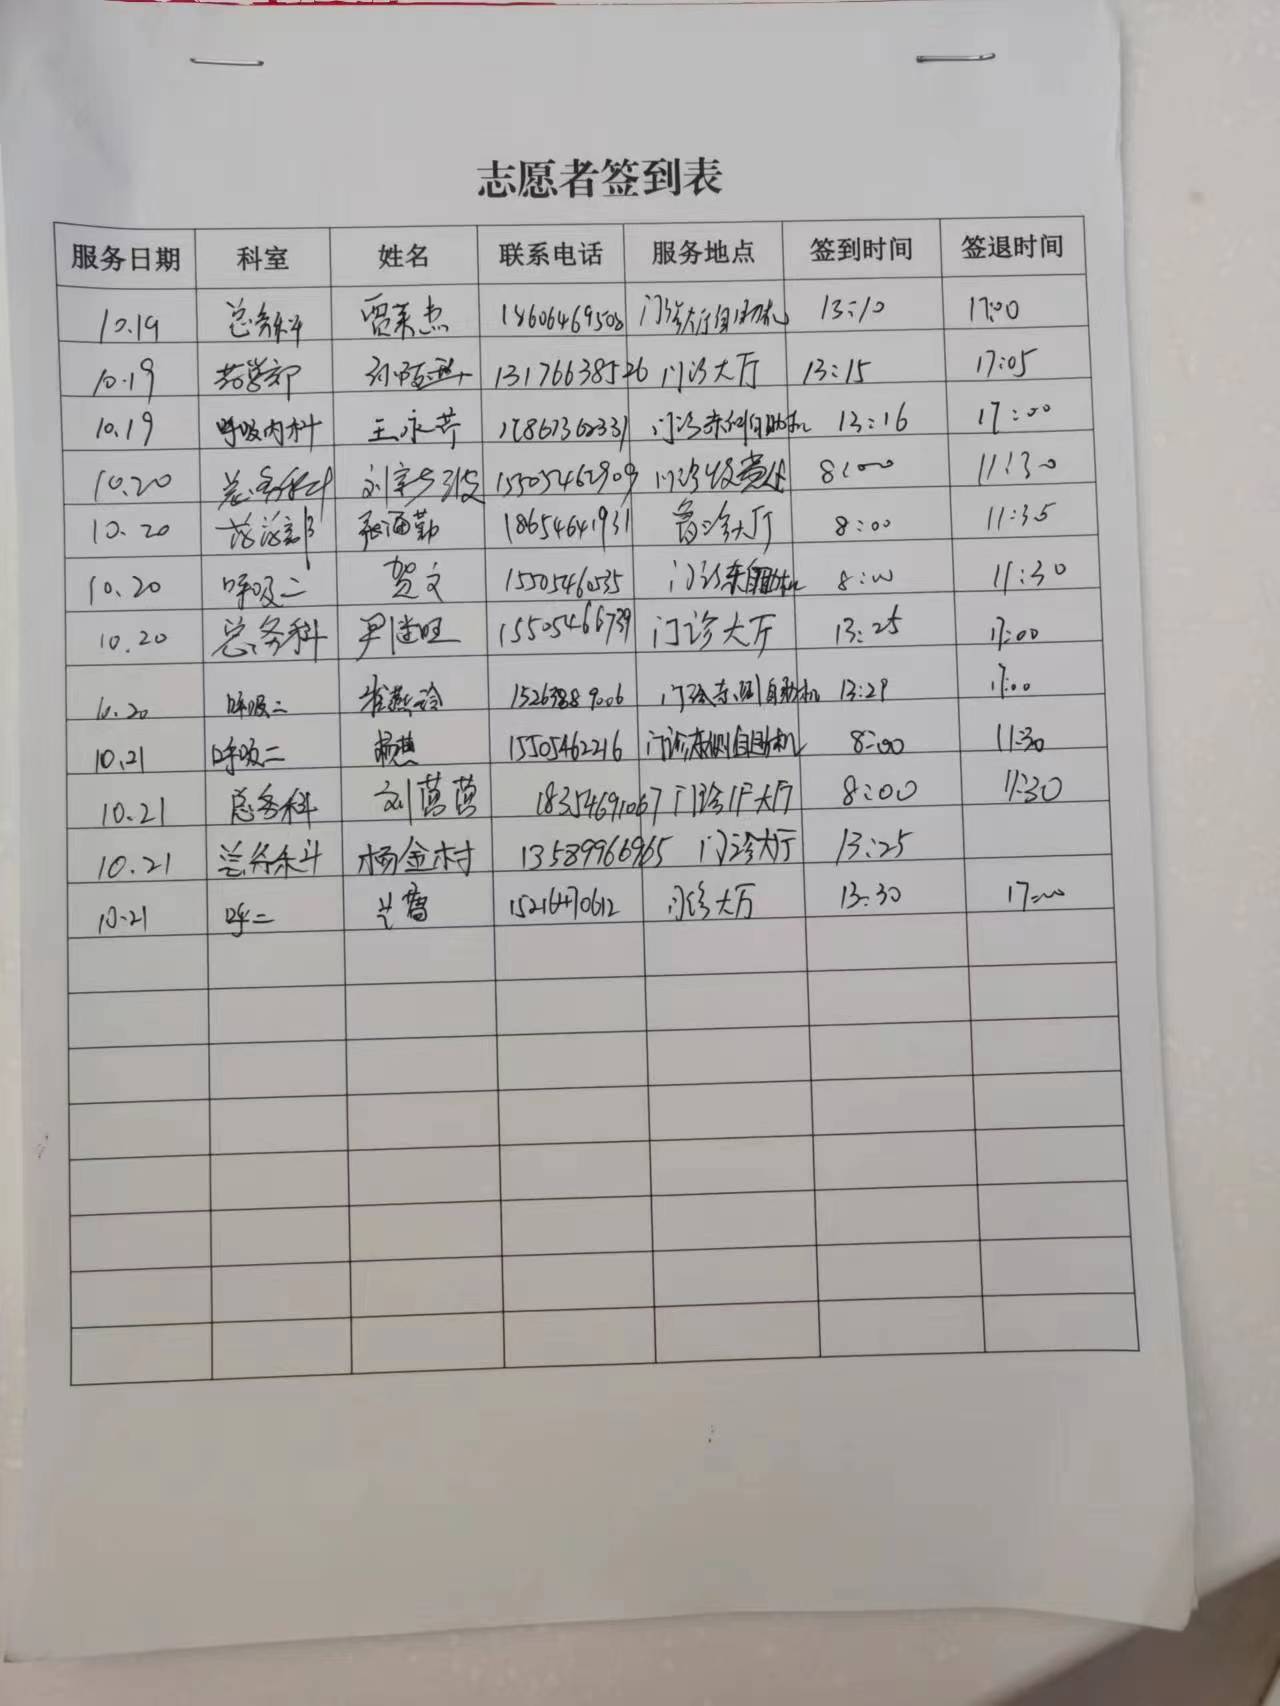 志愿者签到表
服务日期 科室 姓名 联系电话 服务地点 签到时间 签退时间
10.19 总务科 贾来杰 18606469508 门诊大厅自助机 13:10 17:00
10.19 药学部 13176638526 门诊大厅 13:15 17:05
10.19 呼吸内科 王永芹 门诊东侧自助机 13:16 17:00
10.20 总务科 15505462909 门诊收费处 8:00 11:30
10.20 18654641931 大厅 8:00 11:35
10.20 呼吸二 贺文 15505460535 门诊东自助机 8:00 11:30
10.20 总务科 15505466739 门诊大厅 13:25 17:00
10.20 呼吸二 崔燕玲 15263889006 门诊东侧自助机 13:29 17:00
10.21 呼吸二 杨燕 15505462216 门诊东侧自助机 8:00 11:30
10.21 总务科 刘莒莒 18354691067 门诊1F大厅 8:00 11:30
10.21 总务科 杨金村 13589966965 门诊大厅 13:25
10.21 呼二 15216470612 门诊大厅 13:30 17:00